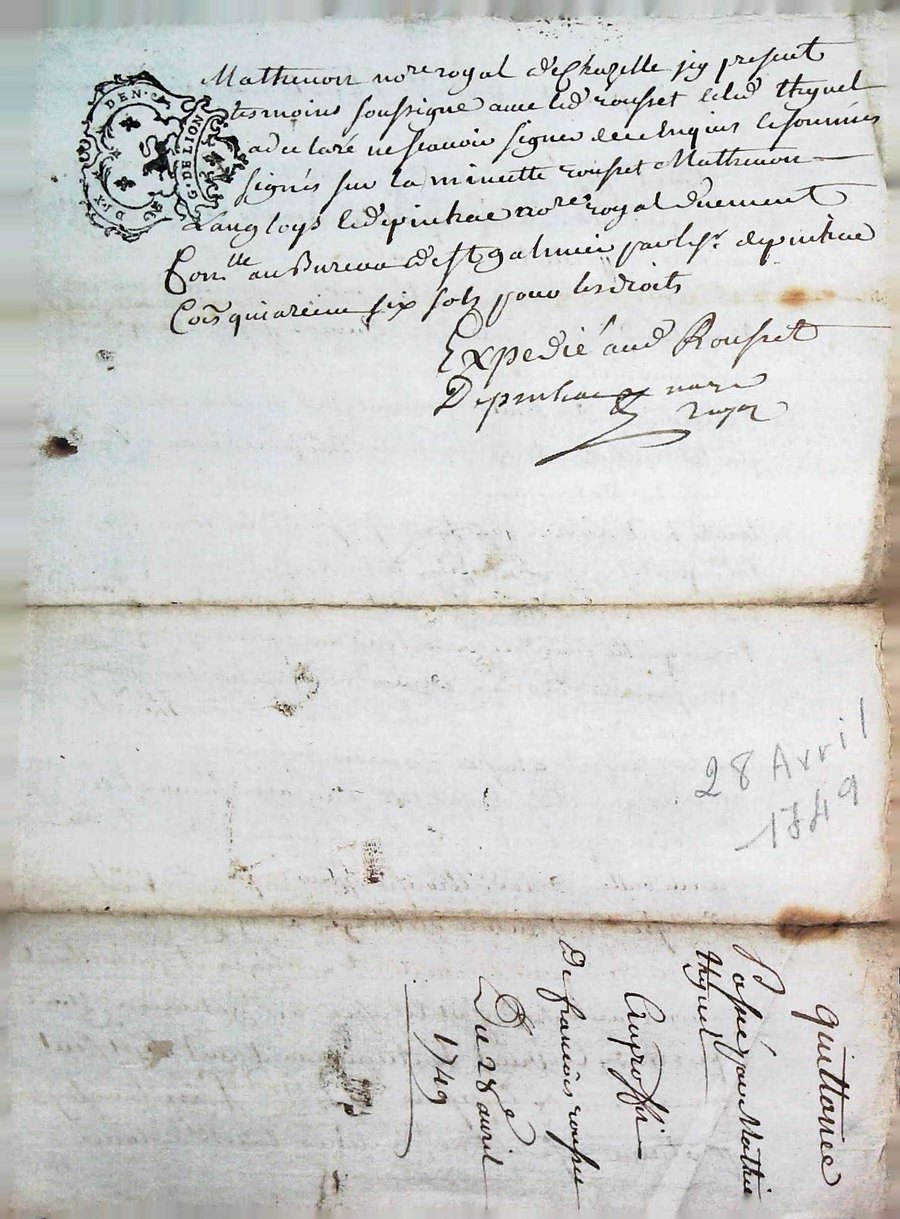 DIX DEN.
G. DE LION
Mathevon no.re royal de Chazelle y present
tesmoins soussigne avec led. rousset led. thynel
a declaré ne scavoir signer de ce enquis les soumis
signés sur la minutte rousset Mathevon
Langloys no.re royal duement
Con.lle au Bureau de St galmier par le Sr.
six sols pour les droits
Expedié aud. Rousset
no.re
royal
28 Avril
1749
quittance
Passé par Mathie
thynel
Au proffit
De francois rousset
Du 28e avril
1749